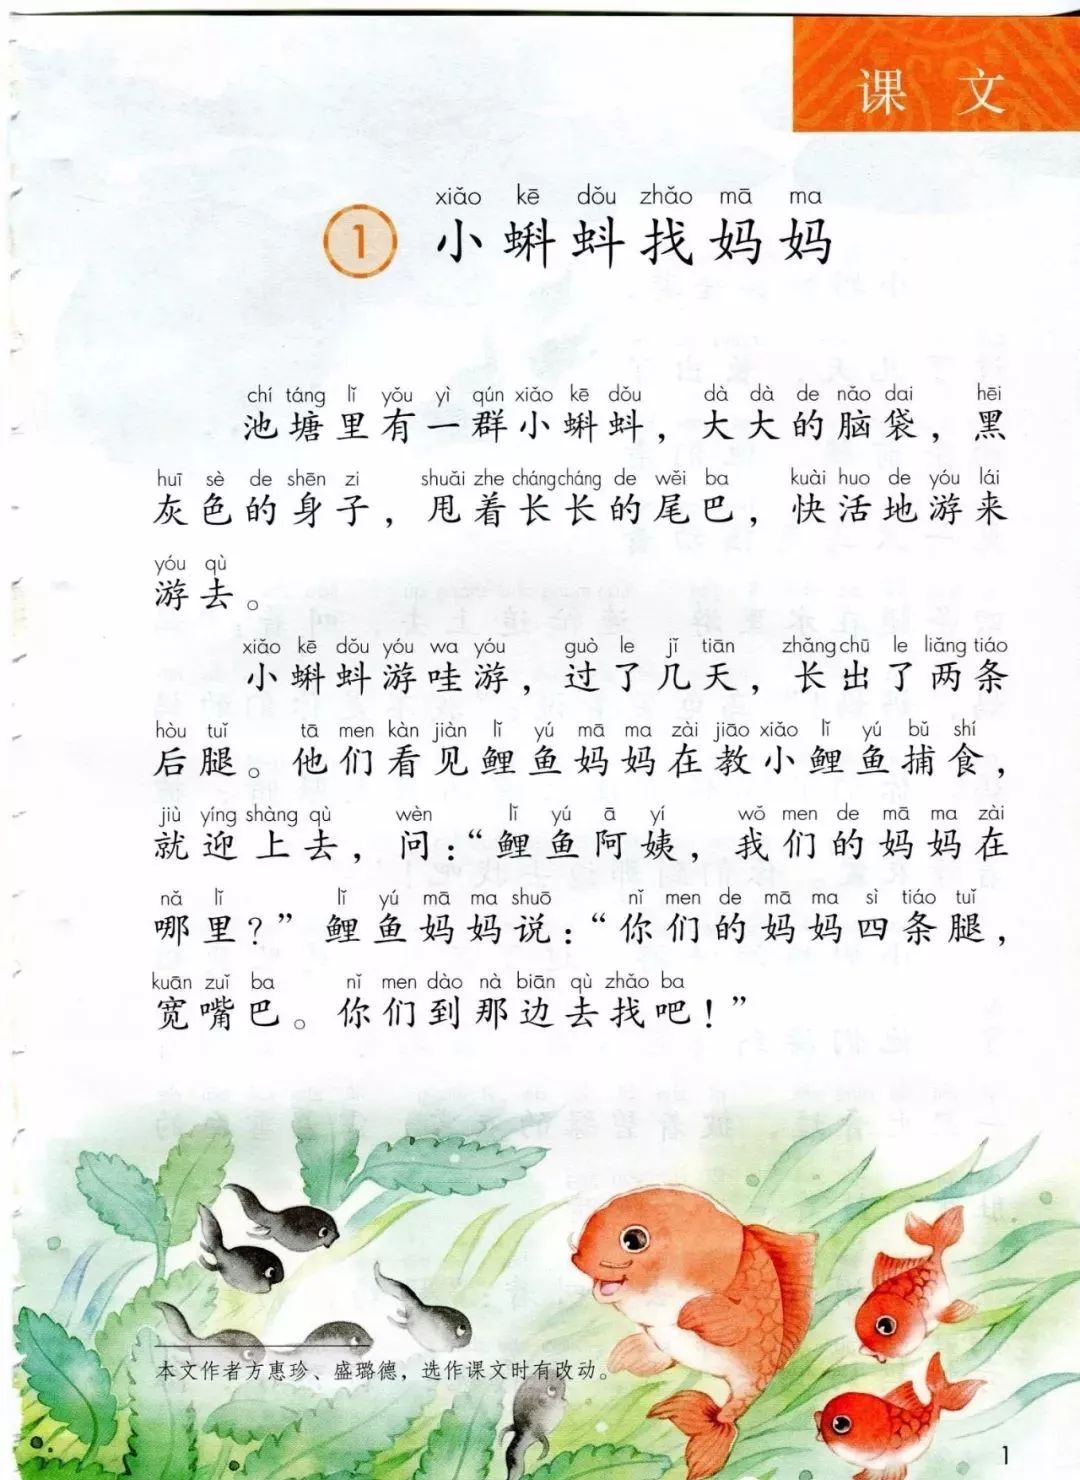 课文
xiǎo kē dǒu zhǎo mā ma
1 小蝌蚪找妈妈
chí táng lǐ yǒu yì qún xiǎo kē dǒu dà dà de nǎo dai hēi
池塘里有一群小蝌蚪，大大的脑袋，黑
huī sè de shēn zi shuǎi zhe cháng cháng de wěi ba kuài huo de yóu lái
灰色的身子，甩着长长的尾巴，快活地游来
yóu qù
游去。
xiǎo kē dǒu yóu wa yóu guò le jǐ tiān zhǎng chū le liǎng tiáo
小蝌蚪游哇游，过了几天，长出了两条
hòu tuǐ tā men kàn jiàn lǐ yú mā ma zài jiāo xiǎo lǐ yú bǔ shí
后腿。他们看见鲤鱼妈妈在教小鲤鱼捕食，
jiù yíng shàng qù wèn lǐ yú ā yí wǒ men de mā ma zài
就迎上去，问：“鲤鱼阿姨，我们的妈妈在
nǎ lǐ lǐ yú mā ma shuō nǐ men de mā ma sì tiáo tuǐ
哪里？”鲤鱼妈妈说：“你们的妈妈四条腿，
kuān zuǐ ba nǐ men dào nà biān qù zhǎo ba
宽嘴巴。你们到那边去找吧！”
本文作者方惠珍、盛璐德，选作课文时有改动。
1